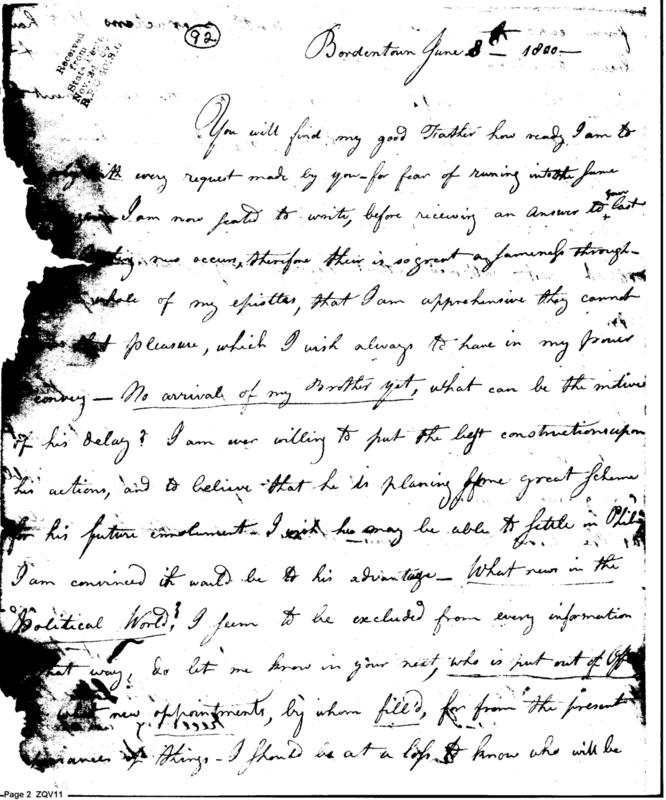 92
Received
from
State Dept.
Bordentown June 8th 1800—
You will find my good Father how ready I am to
with every request made by you—for fear of runing into the same
I am now seated to write, before receiving an answer to your last
new occurs, therefore their is so great a sameness through-
whole of my epistles, that I am apprehensive they cannot
that pleasure, which I wish always to have in my power
convey — No arrival of my Brother yet, what can be the motive
of his delay? I am ever willing to put the best constructions upon
his actions, and to believe that he is planing some great scheme
for his future emolument. I wish he may be able to settle in Phil
I am convinced it would be to his advantage — What news in the
Political World? I seem to be excluded from every information
that way, do let me know in your next, who is put out of Off
new appointments, by whom fill'd, for from the present
of things - I should be at a loss to know who will be
Page 2 ZQV11